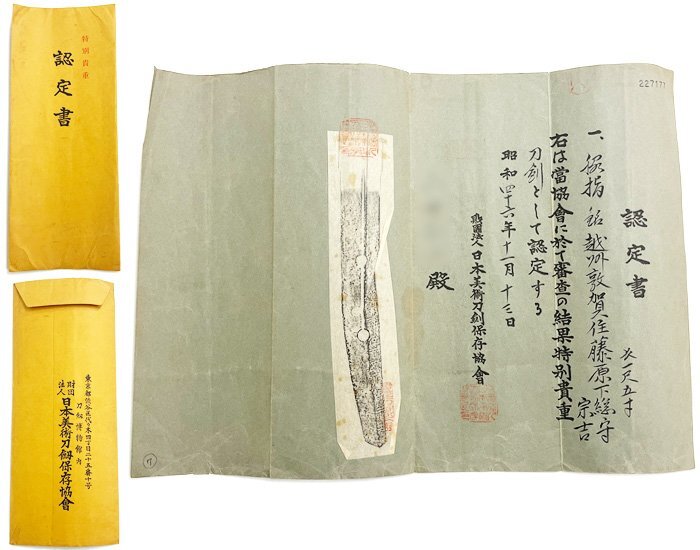 特別貴重
認定書
東京都渋谷区代々木四丁目二十五番十号
刀剣博物館内
財団法人 日本美術刀剣保存協會
227177
認定書
一、脇指 銘 越州敦賀住藤原下總守宗吉
長一尺五寸
右は當協會に於て審査の結果特別貴重
刀劍として認定する
昭和四十六年十一月十三日
財團法人 日本美術刀劍保存協會
殿
7